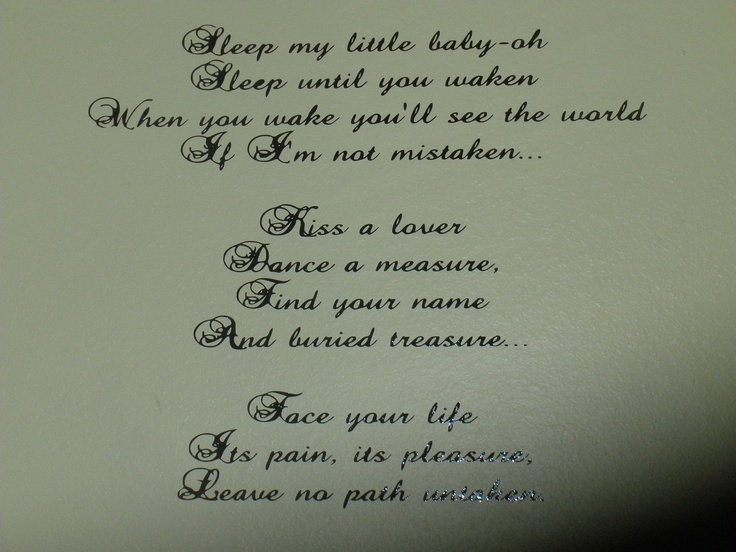 Sleep my little baby-oh
Sleep until you waken
When you wake you'll see the world
If I'm not mistaken...
Kiss a lover
Dance a measure,
Find your name
And buried treasure...
Face your life
Its pain, its pleasure,
Leave no path untaken.